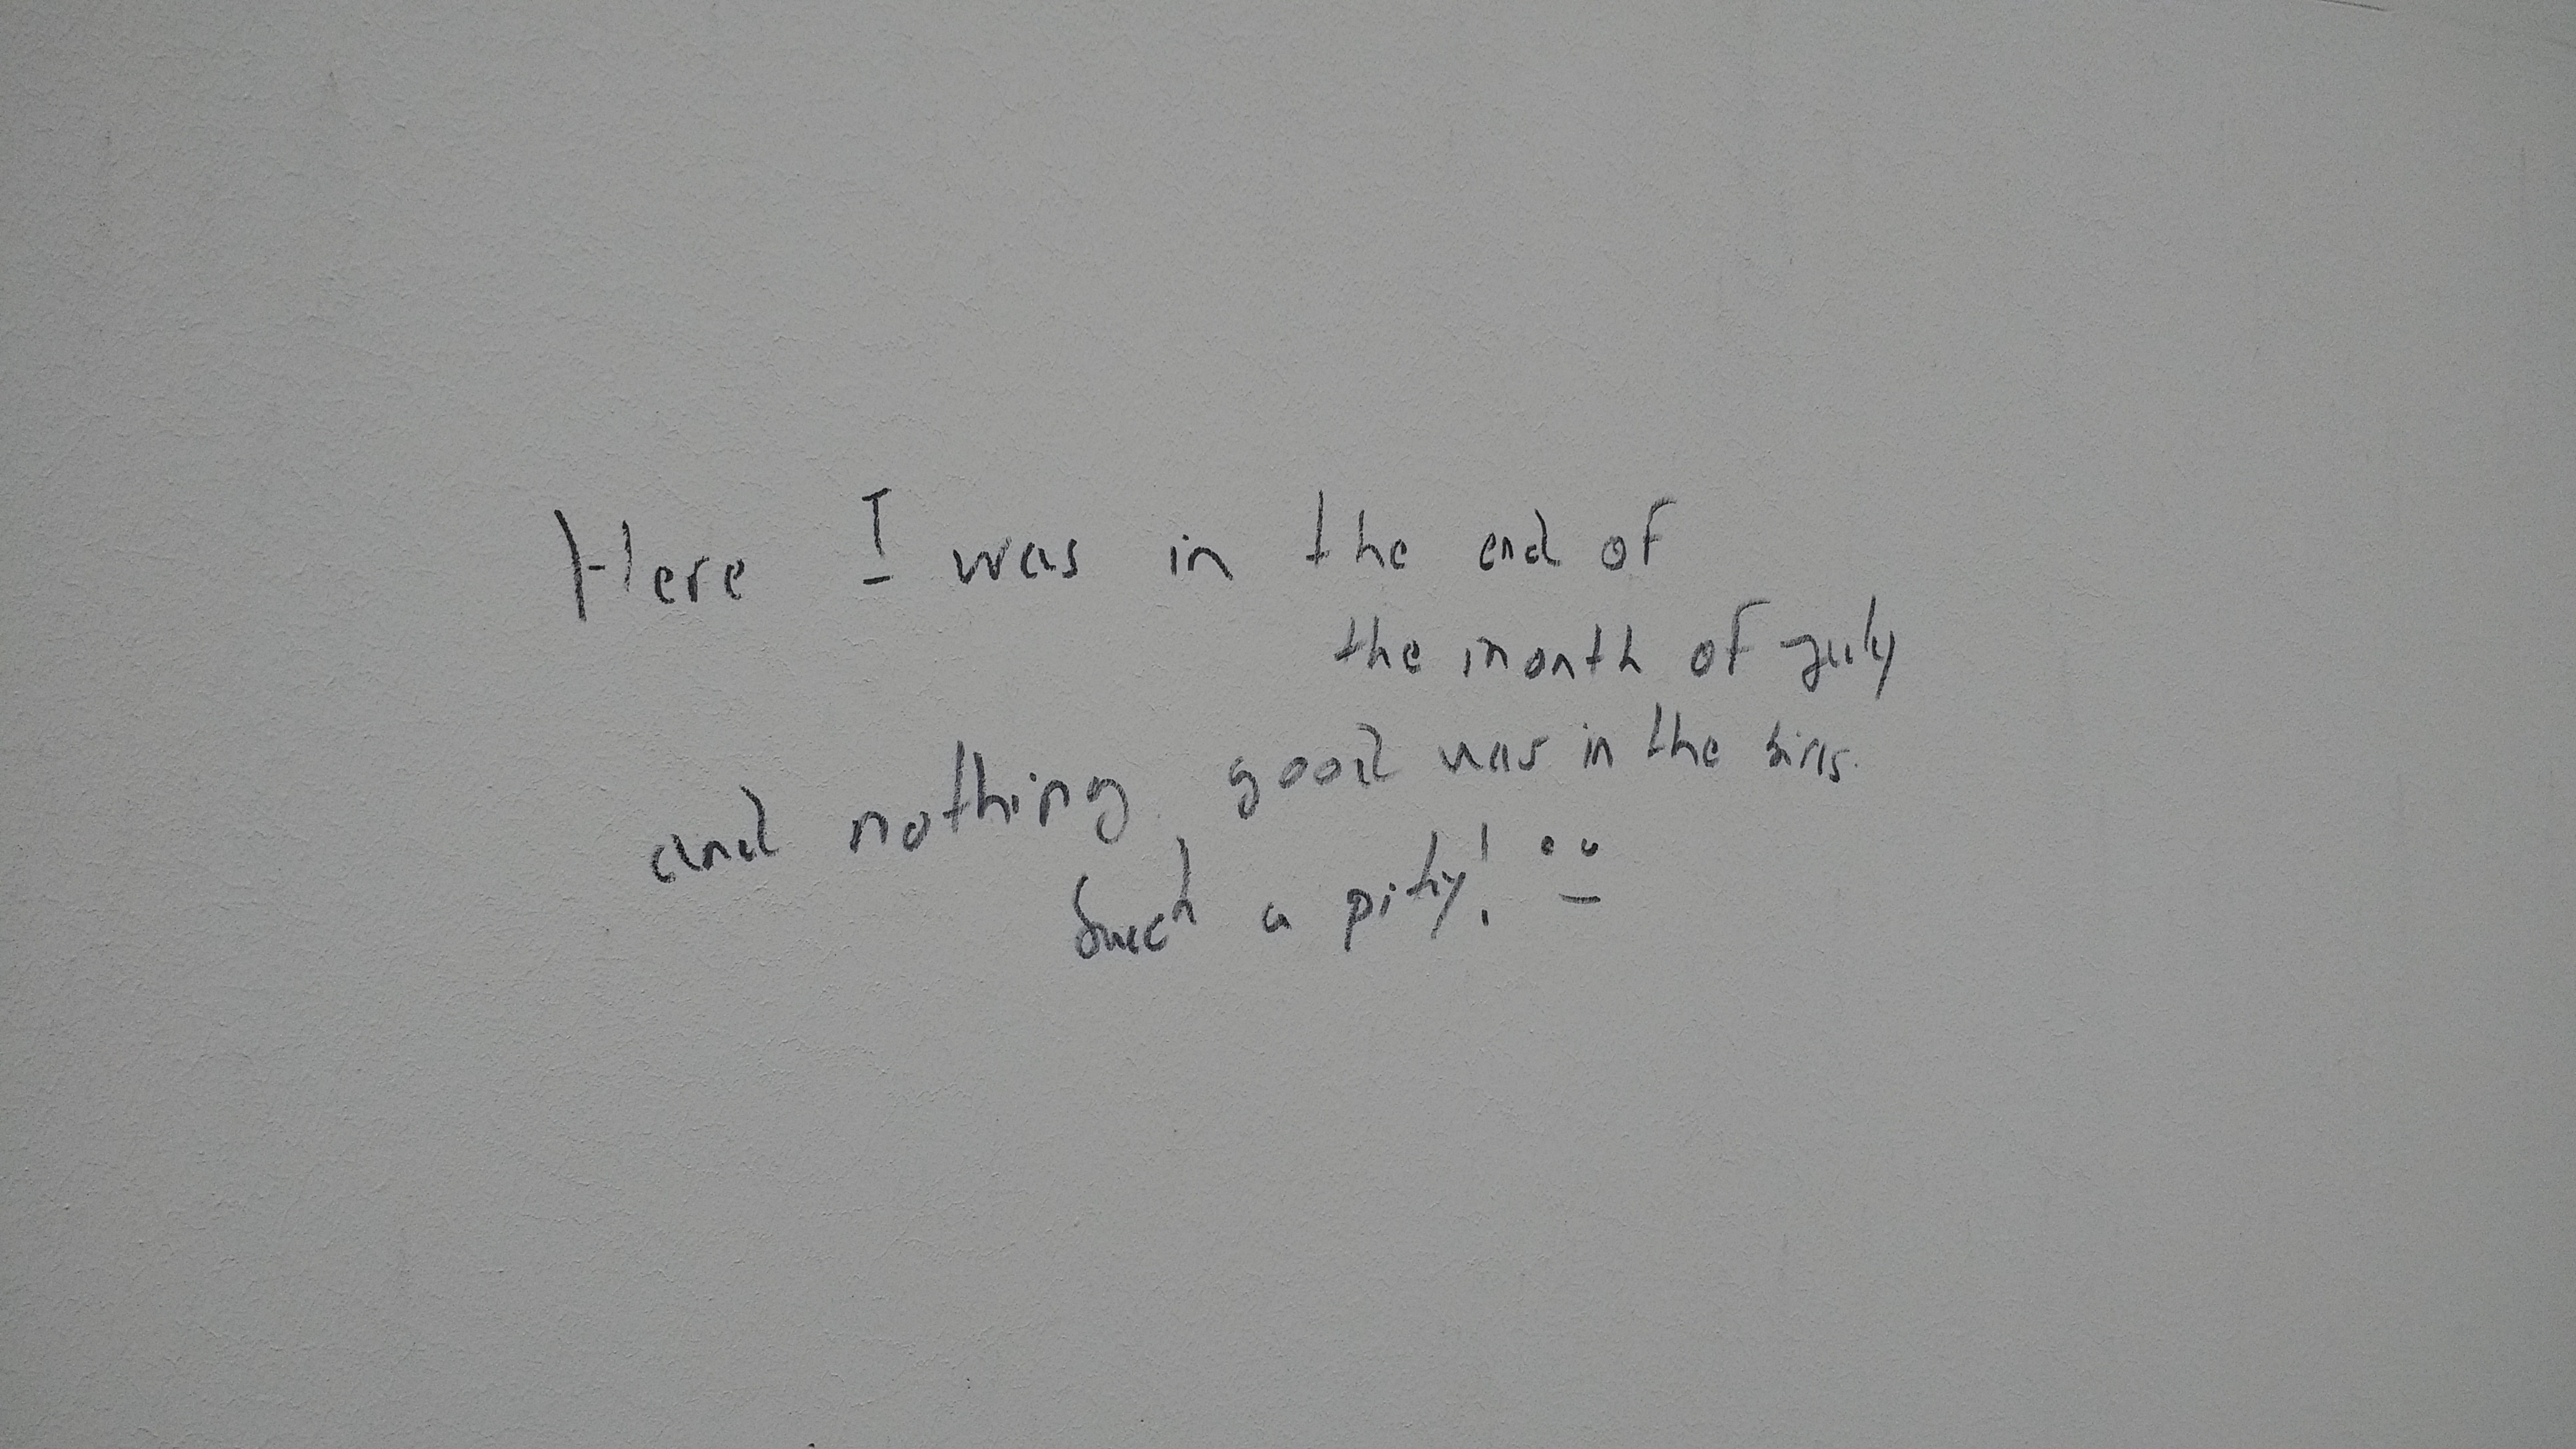 Here I was in the end of
the month of july
and nothing good was in the bins.
Such a pity!